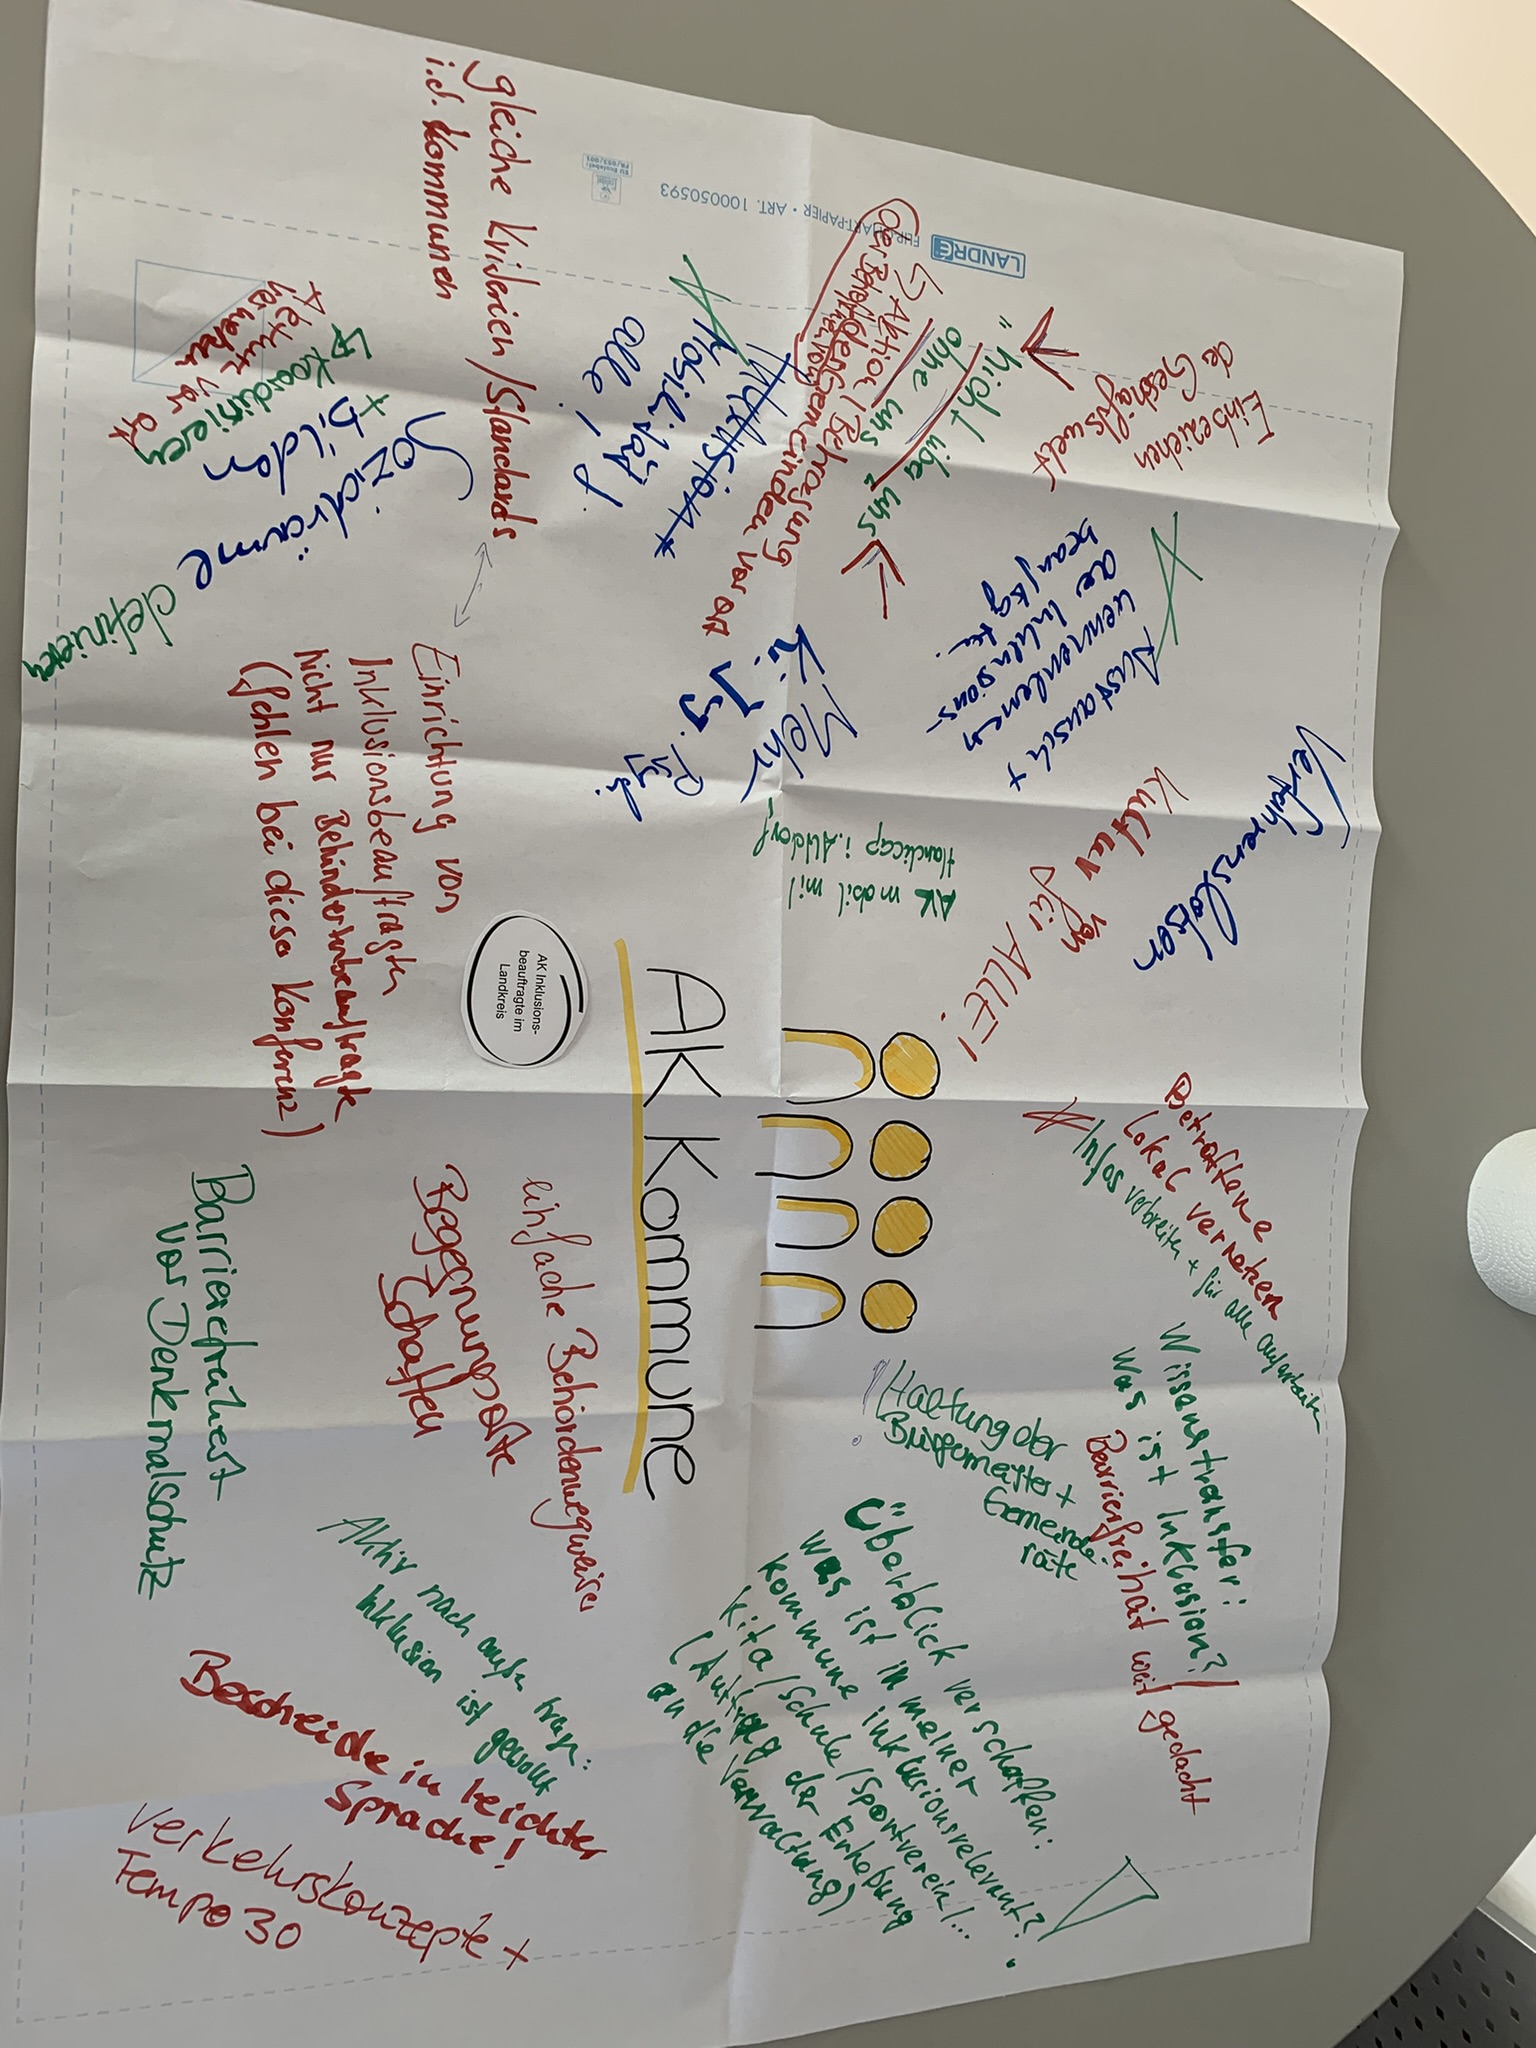 AK Kommune
AK Inklusions-
beauftragte im
Landkreis
gleiche Kriterien/Standards
i.d. Kommunen
Einrichtung von
Inklusionsbeauftragten
nicht nur Behindertenbeauftragte
(fehlen bei dieser Konferenz)
Sozialräume definieren
+ bilden
koordinieren
vor Ort
Mobilität
alle!
LANDRÉ
ART. 100050593
nicht über uns
ohne uns
Gemeinden vor Ort
Einbeziehen
de Geschäftswelt
Austausch +
kennenlernen
der Inklusions-
beauftragten.
Mehr
Ki. Jg. Psych.
AK mobil mit
Handicap i. Altdorf
Verfahrenslotsen
Kultur von
für ALLE!
Betroffene
lokal vernetzen
Infos verbreiten + für alle aufarbeiten
Wissenstransfer:
Was ist Inklusion?
Barrierefreiheit weit gedacht
Haltung der
Bürgermeister +
Gemeinde-
räte
Überblick verschaffen:
was ist in meiner
Kommune inklusionsrelevant?
Kita/Schule/Sportverein/...
(Auftrag der Erhebung
an die Verwaltung)
einfache Behördenwegweiser
Begegnungsorte
schaffen
Barrierefreiheit
vor Denkmalschutz
Aktiv nach außen tragen:
Inklusion ist gewollt
Bescheide in leichter
Sprache!
Verkehrskonzepte +
Tempo 30